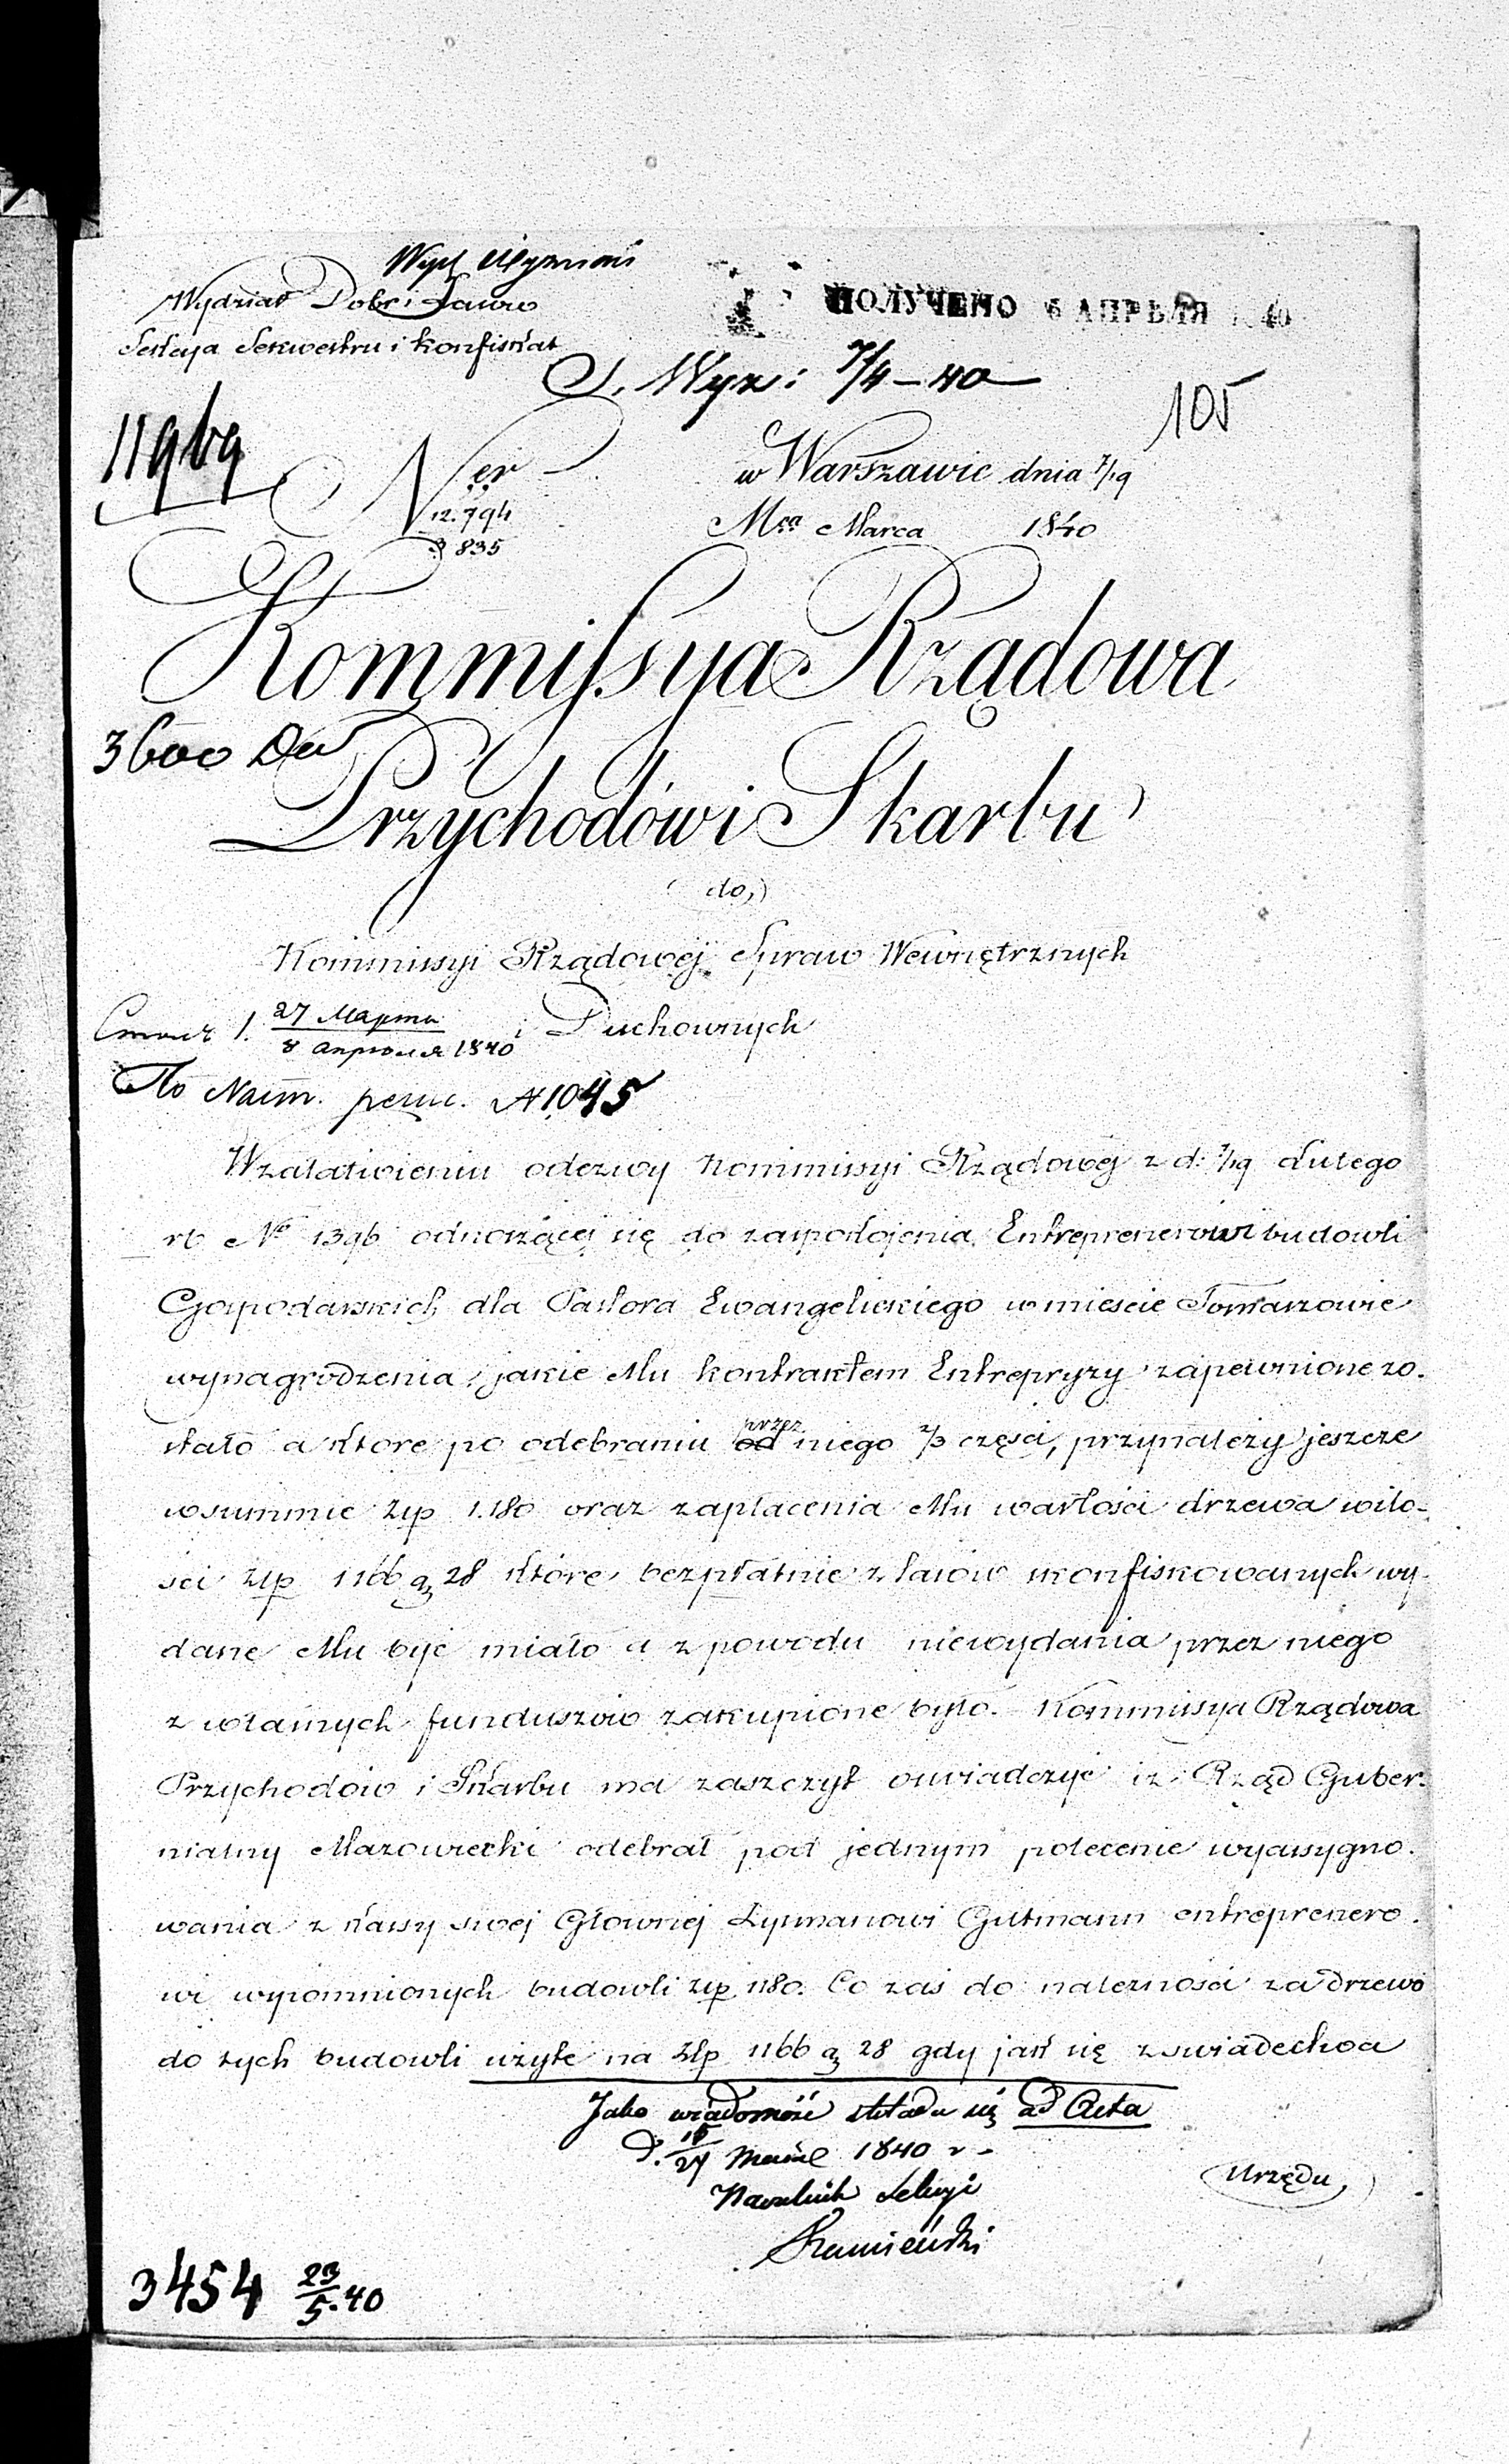 Wydział Dóbr i Lasów
Sekcya Sekwestru i Konfiskat
ПОЛУЧЕНО 6 АПРѢЛЯ 40
S. Wyz: 7/4 – 40
105
11969
Ner
12.794
3 835
w Warszawie dnia 7/19
Mca Marca 1840
Kommissya Rządowa
3600
Przychodów i Skarbu
do
Kommissyi Rządowéj Spraw Wewnętrznych
27 Марта
8 Апрѣля 1840
i Duchownych
По N 1045
W załatwieniu odezwy Kommissyi Rządowéj z d: 7/19 Lutego
rb No 1396 odnoszącéj się do zaspokojenia Entreprenerowi budowli
Gospodarskich dla Pastora Ewangelickiego w mieście Tomaszowie
wynagrodzenia, jakie Mu kontraktem Entrepryzy zapewnione zo-
stało a które po odebraniu od przez niego 2/3 części, przynależy jeszcze
w summie złp 1.180 oraz zapłacenia Mu wartości drzewa w ilo-
ści złp 1166 g 28 które bezpłatnie z lasów skonfiskowanych wy-
dane Mu być miało a z powodu niewydania przez niego
z własnych funduszów zakupione było. Kommissya Rządowa
Przychodów i Skarbu ma zaszczyt oświadczyć iż Rząd Guber-
nialny Mazowiecki odebrał pod jednym polecenie wyassygno-
wania z kassy swéj Głównéj Zysmanowi Gutmann entreprenero-
wi wspomnionych budowli złp 1180. Co zaś do należności za drzewo
do tych budowli użyte na Złp 1166 g 28 gdy jak się z świadectwa
Jako wiadomość składa się ad Acta
D. 15/27 1840 r –
Naczelnik Sekcyi
Urzędu
3454 23/5.40